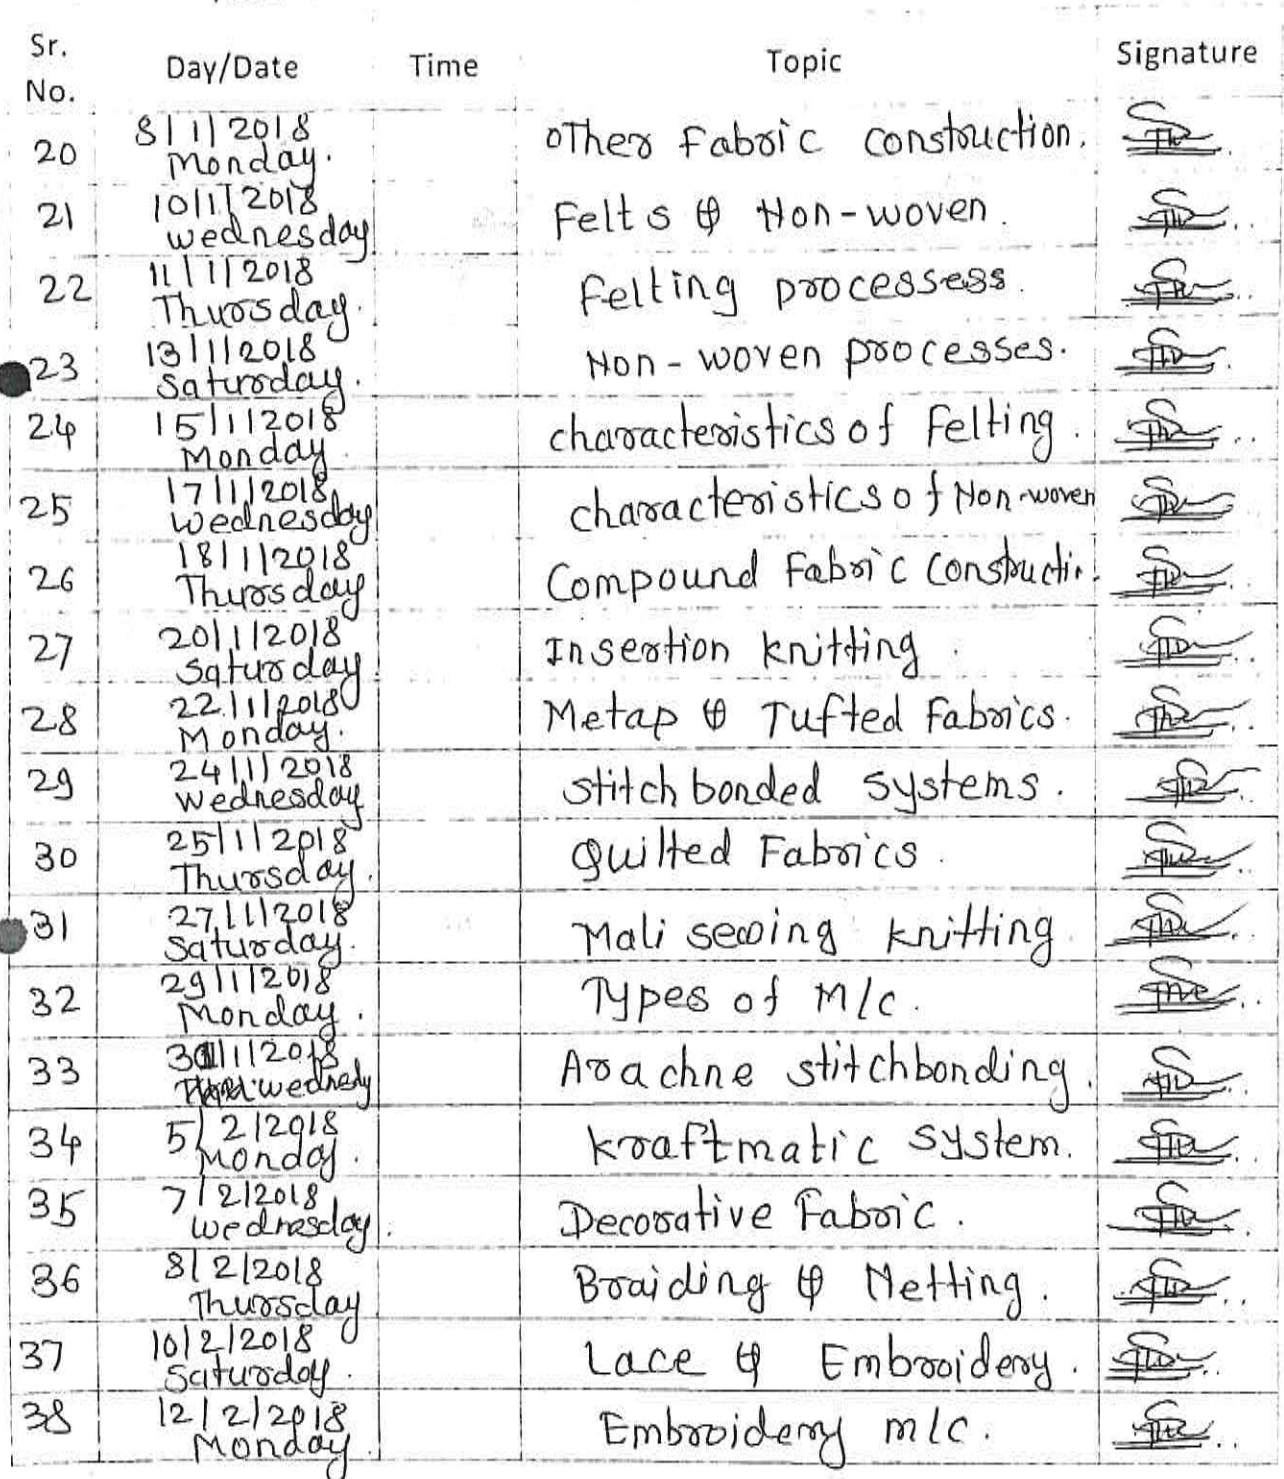 Sr. No. Day/Date Time Topic Signature
20 8/1/2018 Monday. Other Fabric construction.
21 10/1/2018 wednesday Felts & Non-woven.
22 11/1/2018 Thursday. Felting processess.
23 13/1/2018 Saturday. Non-woven processes.
24 15/1/2018 Monday. characteristics of Felting.
25 17/1/2018 wednesday characteristics of Non-woven
26 18/1/2018 Thursday Compound Fabric Constructi.
27 20/1/2018 Saturday Insertion knitting.
28 22/1/2018 Monday. Metap & Tufted Fabrics.
29 24/1/2018 wednesday stitch bonded systems.
30 25/1/2018 Thursday. Quilted Fabrics.
31 27/1/2018 Saturday. Mali sewing knitting.
32 29/1/2018 Monday. Types of M/c.
33 /1/2018 wednedy Arachne stitchbonding.
34 5/2/2018 Monday. kraftmatic system.
35 7/2/2018 wednesday. Decorative Fabric.
36 8/2/2018 Thursday Braiding & Netting.
37 10/2/2018 Saturday. Lace & Embroidery.
38 12/2/2018 Monday. Embroidery m/c.